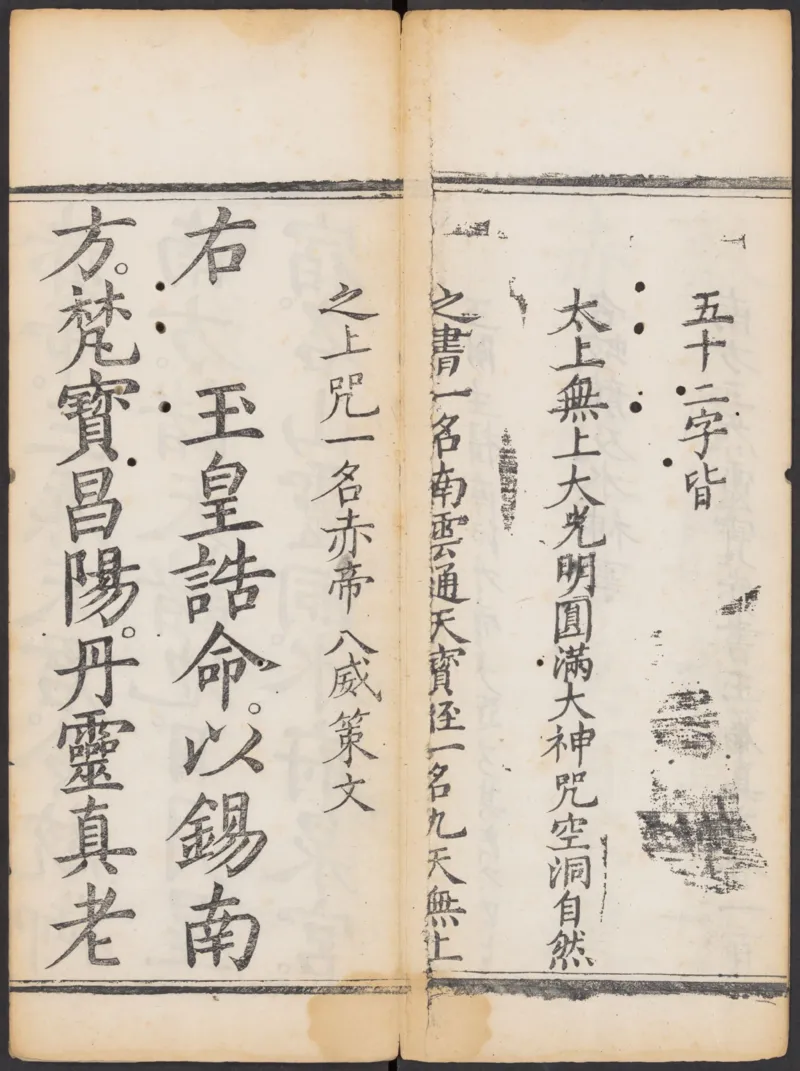 五十二字皆
太上無上大光明圓滿大神咒空洞自然
之書一名南雲通天寳經一名九天無上
之上咒一名赤帝八威策文
右　玉皇誥命。以錫南
方。梵寳昌陽。丹靈真老